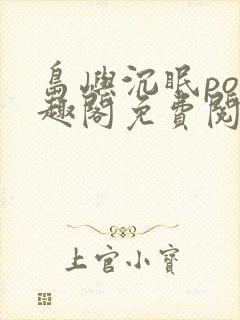 島嶼沉眠po
趣閣免費閱
上官小寶